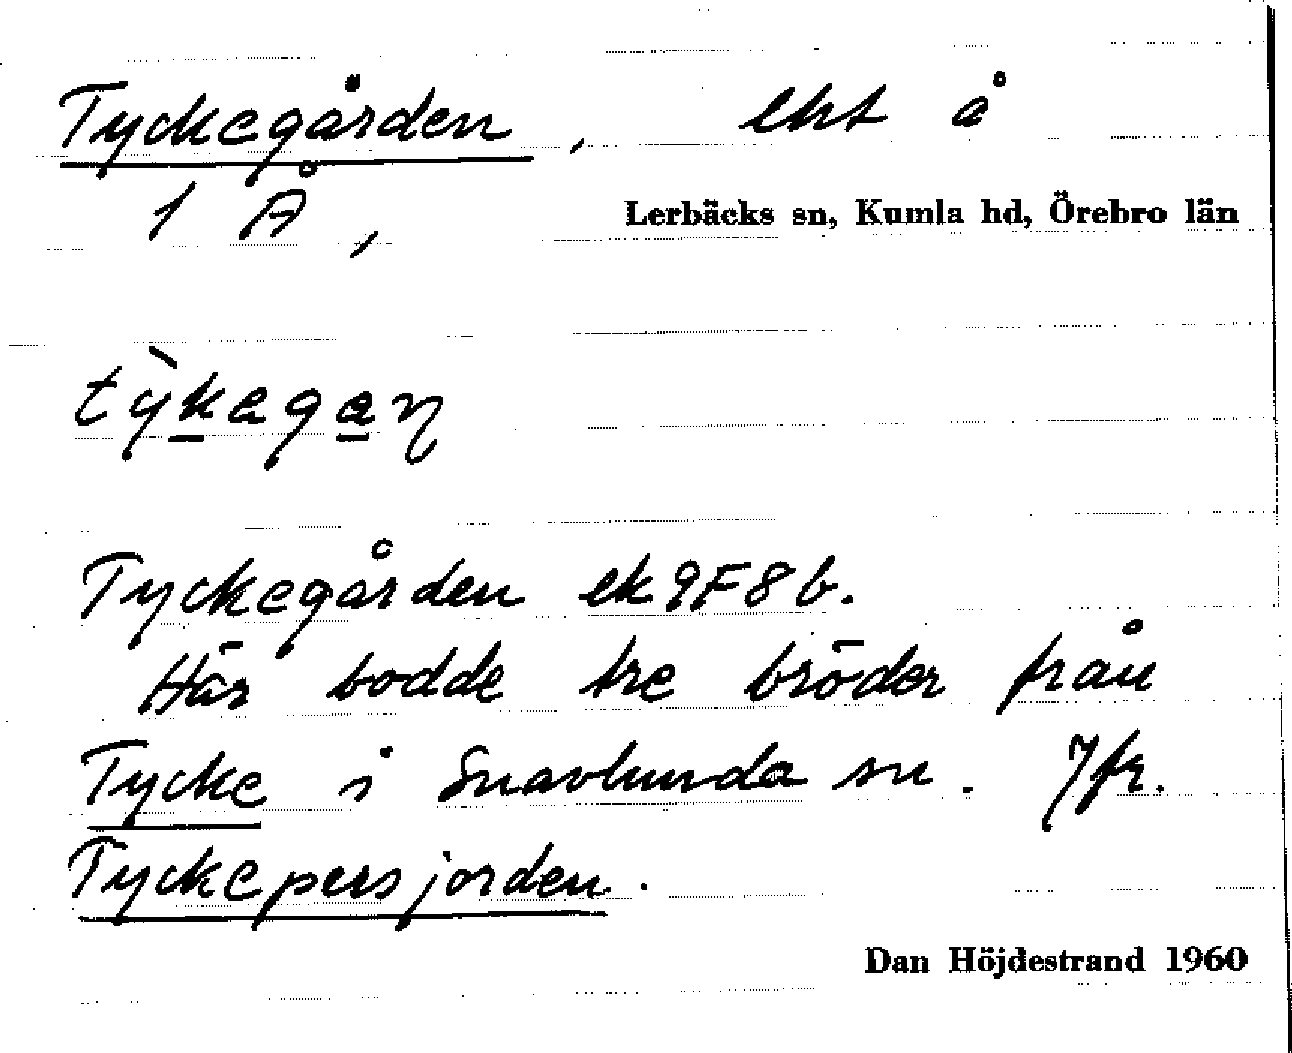 Tyckegården, lht å
1 Å,
Lerbäcks sn, Kumla hd, Örebro län
tỳkegaɳ
Tyckegården ek 9F8b.
Här bodde tre bröder från
Tycke i Snavlunda sn. Jfr.
Tyckepersjorden.
Dan Höjdestrand 1960